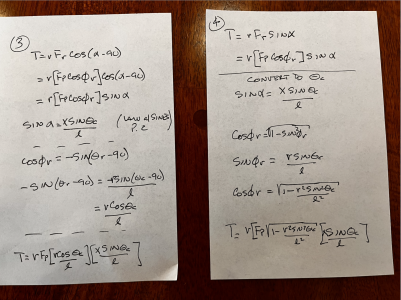 ③
T = r Fr cos(α-90)
= r[Fp cosϕr] cos(α-90)
= r[Fp cosϕr] sin α
sin α = x sinθc / l (Law of Sines)
P. 2
cosϕr = -sin(θr-90)
-sin(θr-90) = -r sin(θc-90) / l
= r cosθc / l
T = r Fp [r cosθc / l] [x sinθc / l]
④
T = r Fr sin α
= r[Fp cosϕr] sin α
CONVERT TO θc
sin α = x sinθc / l
cosϕr = √1-sin²ϕr
sinϕr = r sinθc / l
cosϕr = √1-r² sin²θc / l²
T = r[Fp √1-r² sin²θc / l²] [x sinθc / l]